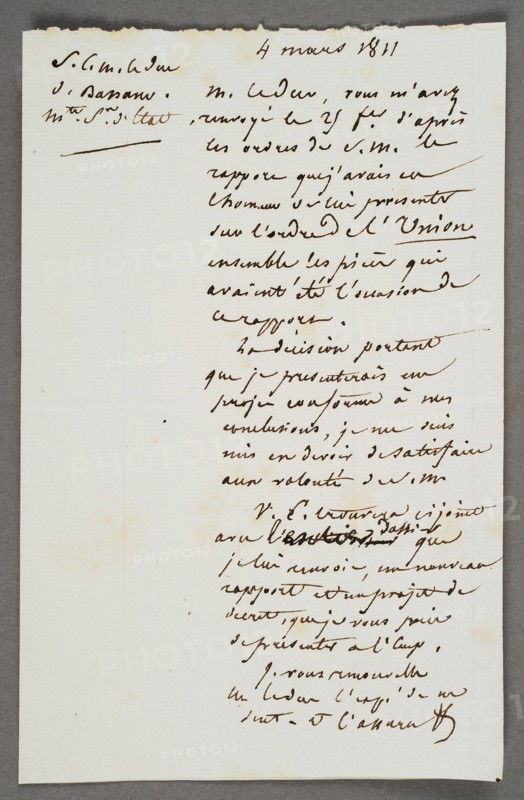 4 mars 1811
S. E. m. le duc
d. Bassano.
mtre Sre d'Etat,
m. le duc, vous m'avez
renvoyé le 25 fer d'après
les ordres de S. m. le
rapport que j'avais eu
l'honneur de lui présenter
sur l'ordre de l'Union
ensemble les pièces qui
avaient été l'occasion de
ce rapport.
La décision portant
que je présenterais un
projet conforme à mes
conclusions, je me suis
mis en devoir de satisfaire
aux volontés de S. m.
V. E. trouvera ci joint
avec l' dossier que
je lui renvoie, un nouveau
rapport et un projet de
décret, que je vous prie
de présenter à l'Emp.
Je vous renouvelle
m. le duc l'exp. de me
sent. et l'assura
PHOTO12